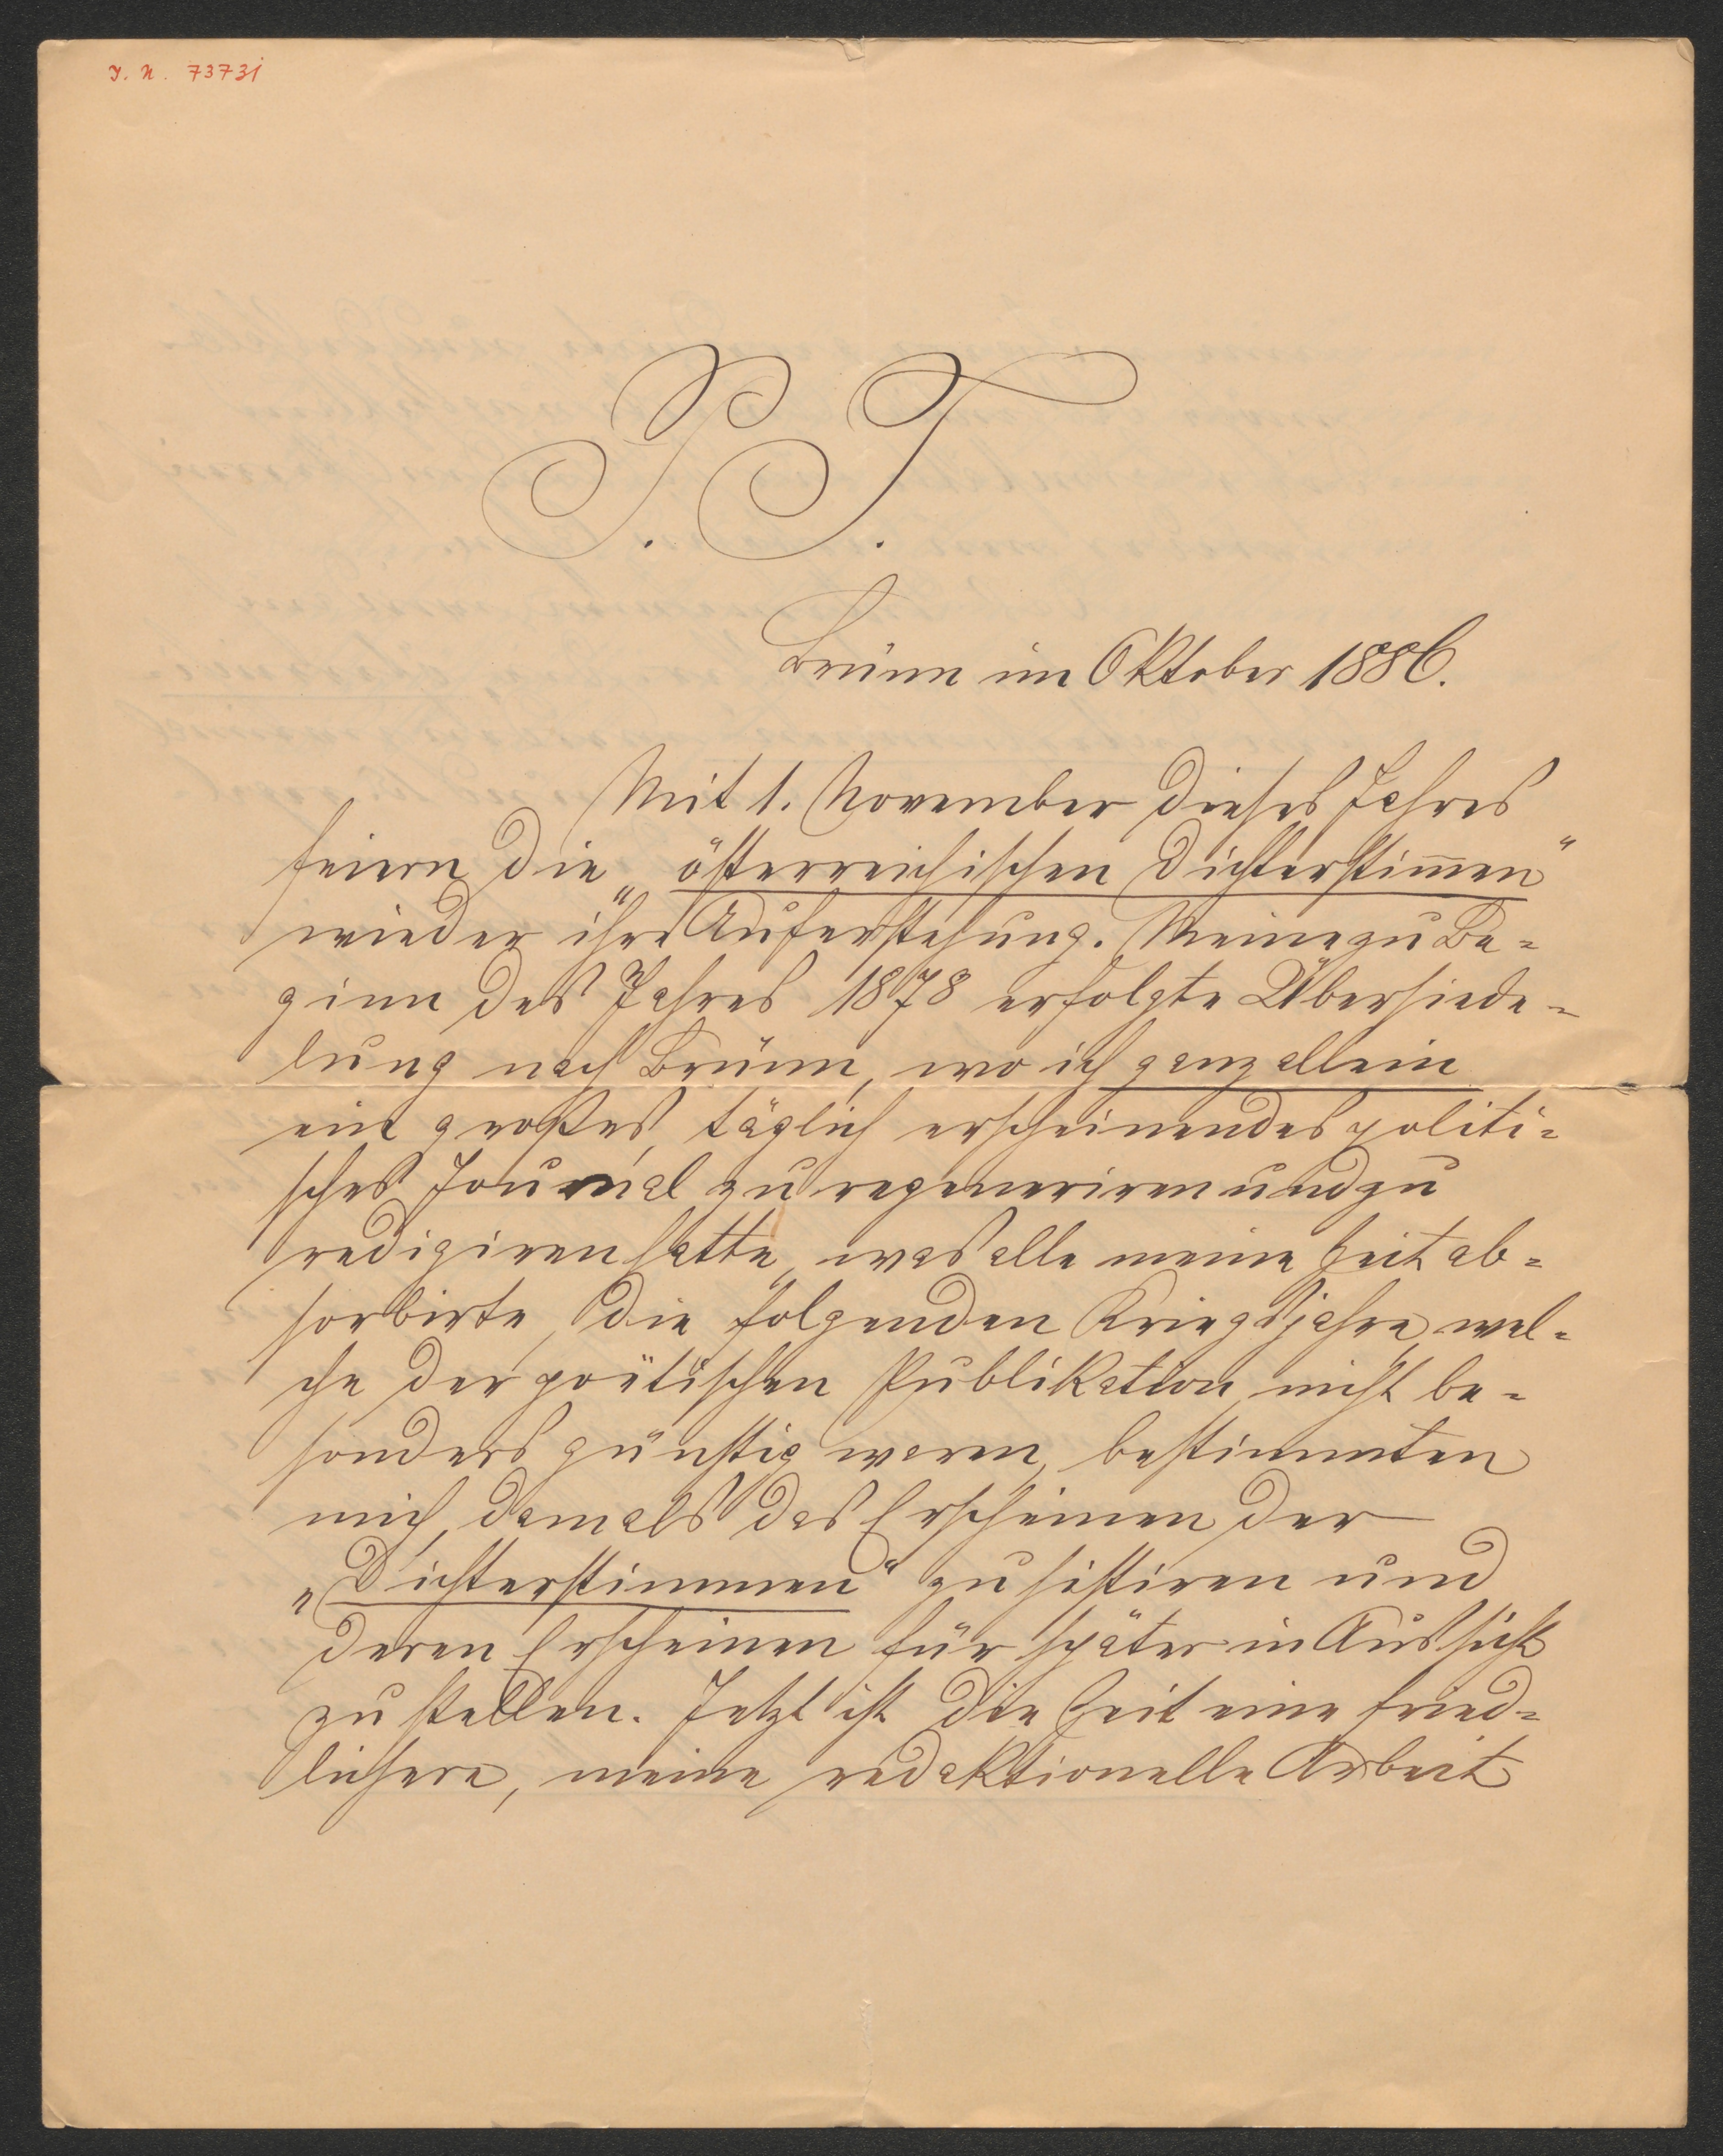 I. N. 73731
P. T.
Brünn im Oktober 1886.
Mit 1. November dieses Jahres
feiern die „österreichischen Dichterstim̅en“
wieder ihre Auferstehung. Meine zu Be=
ginn des Jahres 1878 erfolgte Übersiede=
lung nach Brünn, wo ich ganz allein
ein großes, täglich erscheinendes politi=
sches Journal zu regeneriren und zu
redigiren hatte, was alle meine Zeit ab=
sorbirte, die folgenden Kriegsjahre, wel=
che der poëtischen Publikation nicht be=
sonders günstig waren, bestimmten
mich, damals das Erscheinen der
„Dichterstimmen“ zu sistiren und
deren Erscheinen für später in Aussicht
zu stellen. Jetzt ist die Zeit eine fried=
lichere, meine redaktionelle Arbeit